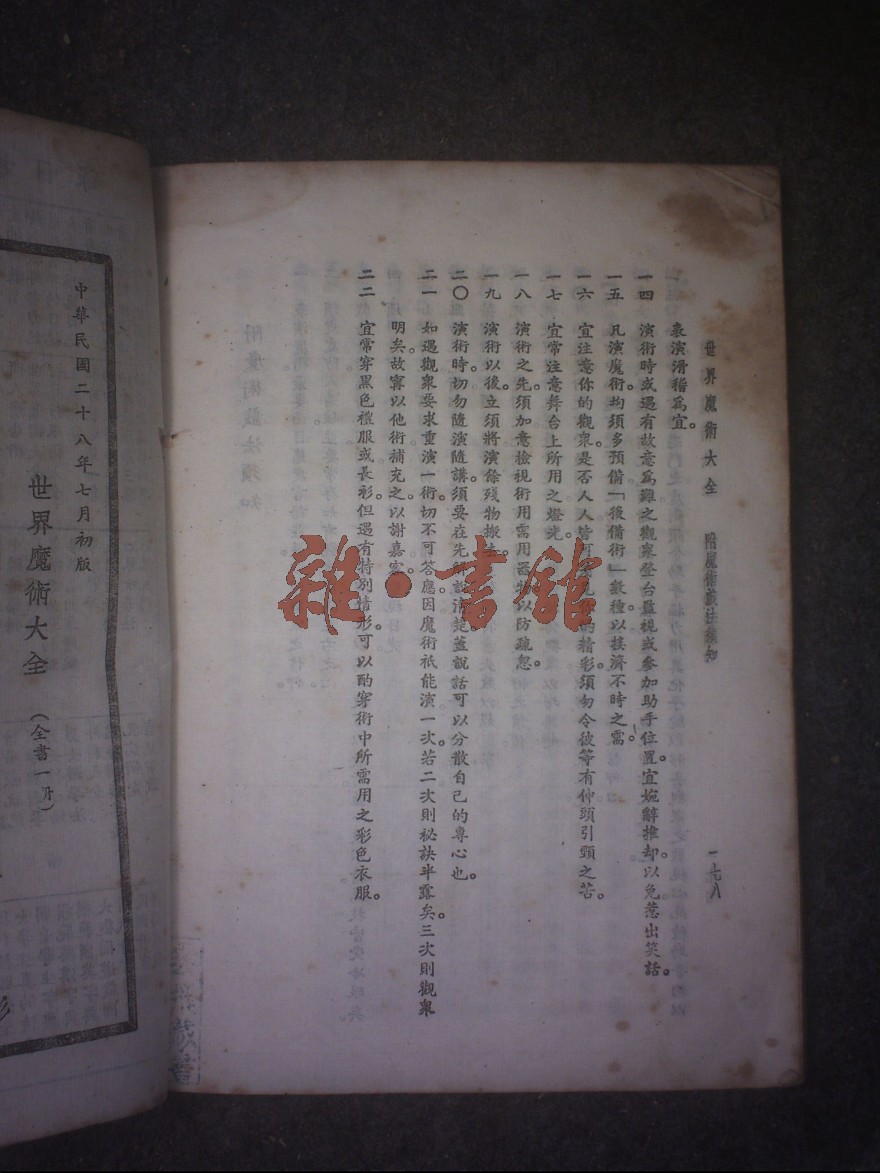 世界魔術大全　附魔術戲法須知
一七八
表演滑稽爲宜。
一四　演術時或遇有故意爲難之觀衆登台監視或參加助手位置。宜婉辭推却。以免惹出笑話。
一五　凡演魔術均須多預備「後備術」數種以接濟不時之需。
一六　宜注意你的觀衆是否人人皆可 的精彩。須勿令彼等有伸頭引頸之苦。
一七　宜常注意舞台上所用之燈光。
一八　演術之先。須加意檢視術用需用器物以防疏忽。
一九　演術以後。立須將演餘殘物搬
二〇　演術時切勿隨演隨講。須要在先解說清楚。蓋說話可以分散自己的專心也。
二一　如遇觀衆要求重演一術。切不可答應。因魔術祇能演一次。若二次則秘訣半露矣。三次則觀衆
明矣。故寧以他術補充之。以謝嘉客。
二二　宜常穿黑色禮服或長衫。但遇有特別情形。可以酌穿術中所需用之彩色衣服。
雜·書舘
中華民國二十八年七月初版
世界魔術大全
（全書一冊）
藏書